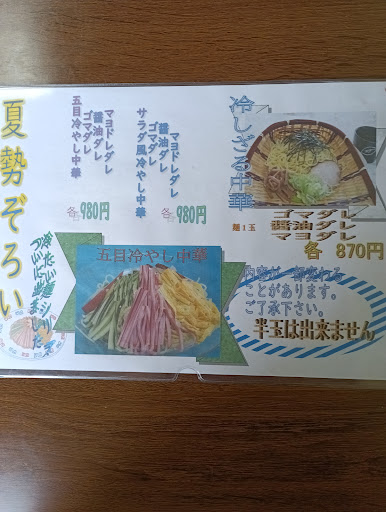 夏勢ぞろい
冷たい麺シリーズ
ついに出ました
五目冷やし中華
ゴマダレ
醤油ダレ
マヨドレダレ
各980円
サラダ風冷やし中華
ゴマダレ
醤油ダレ
マヨドレダレ
各980円
冷しざる中華
麺1玉
ゴマダレ
醤油ダレ
マヨダレ
各 870円
五目冷やし中華
内容が一部変わる
ことがあります。
ご了承下さい。
半玉は出来ません